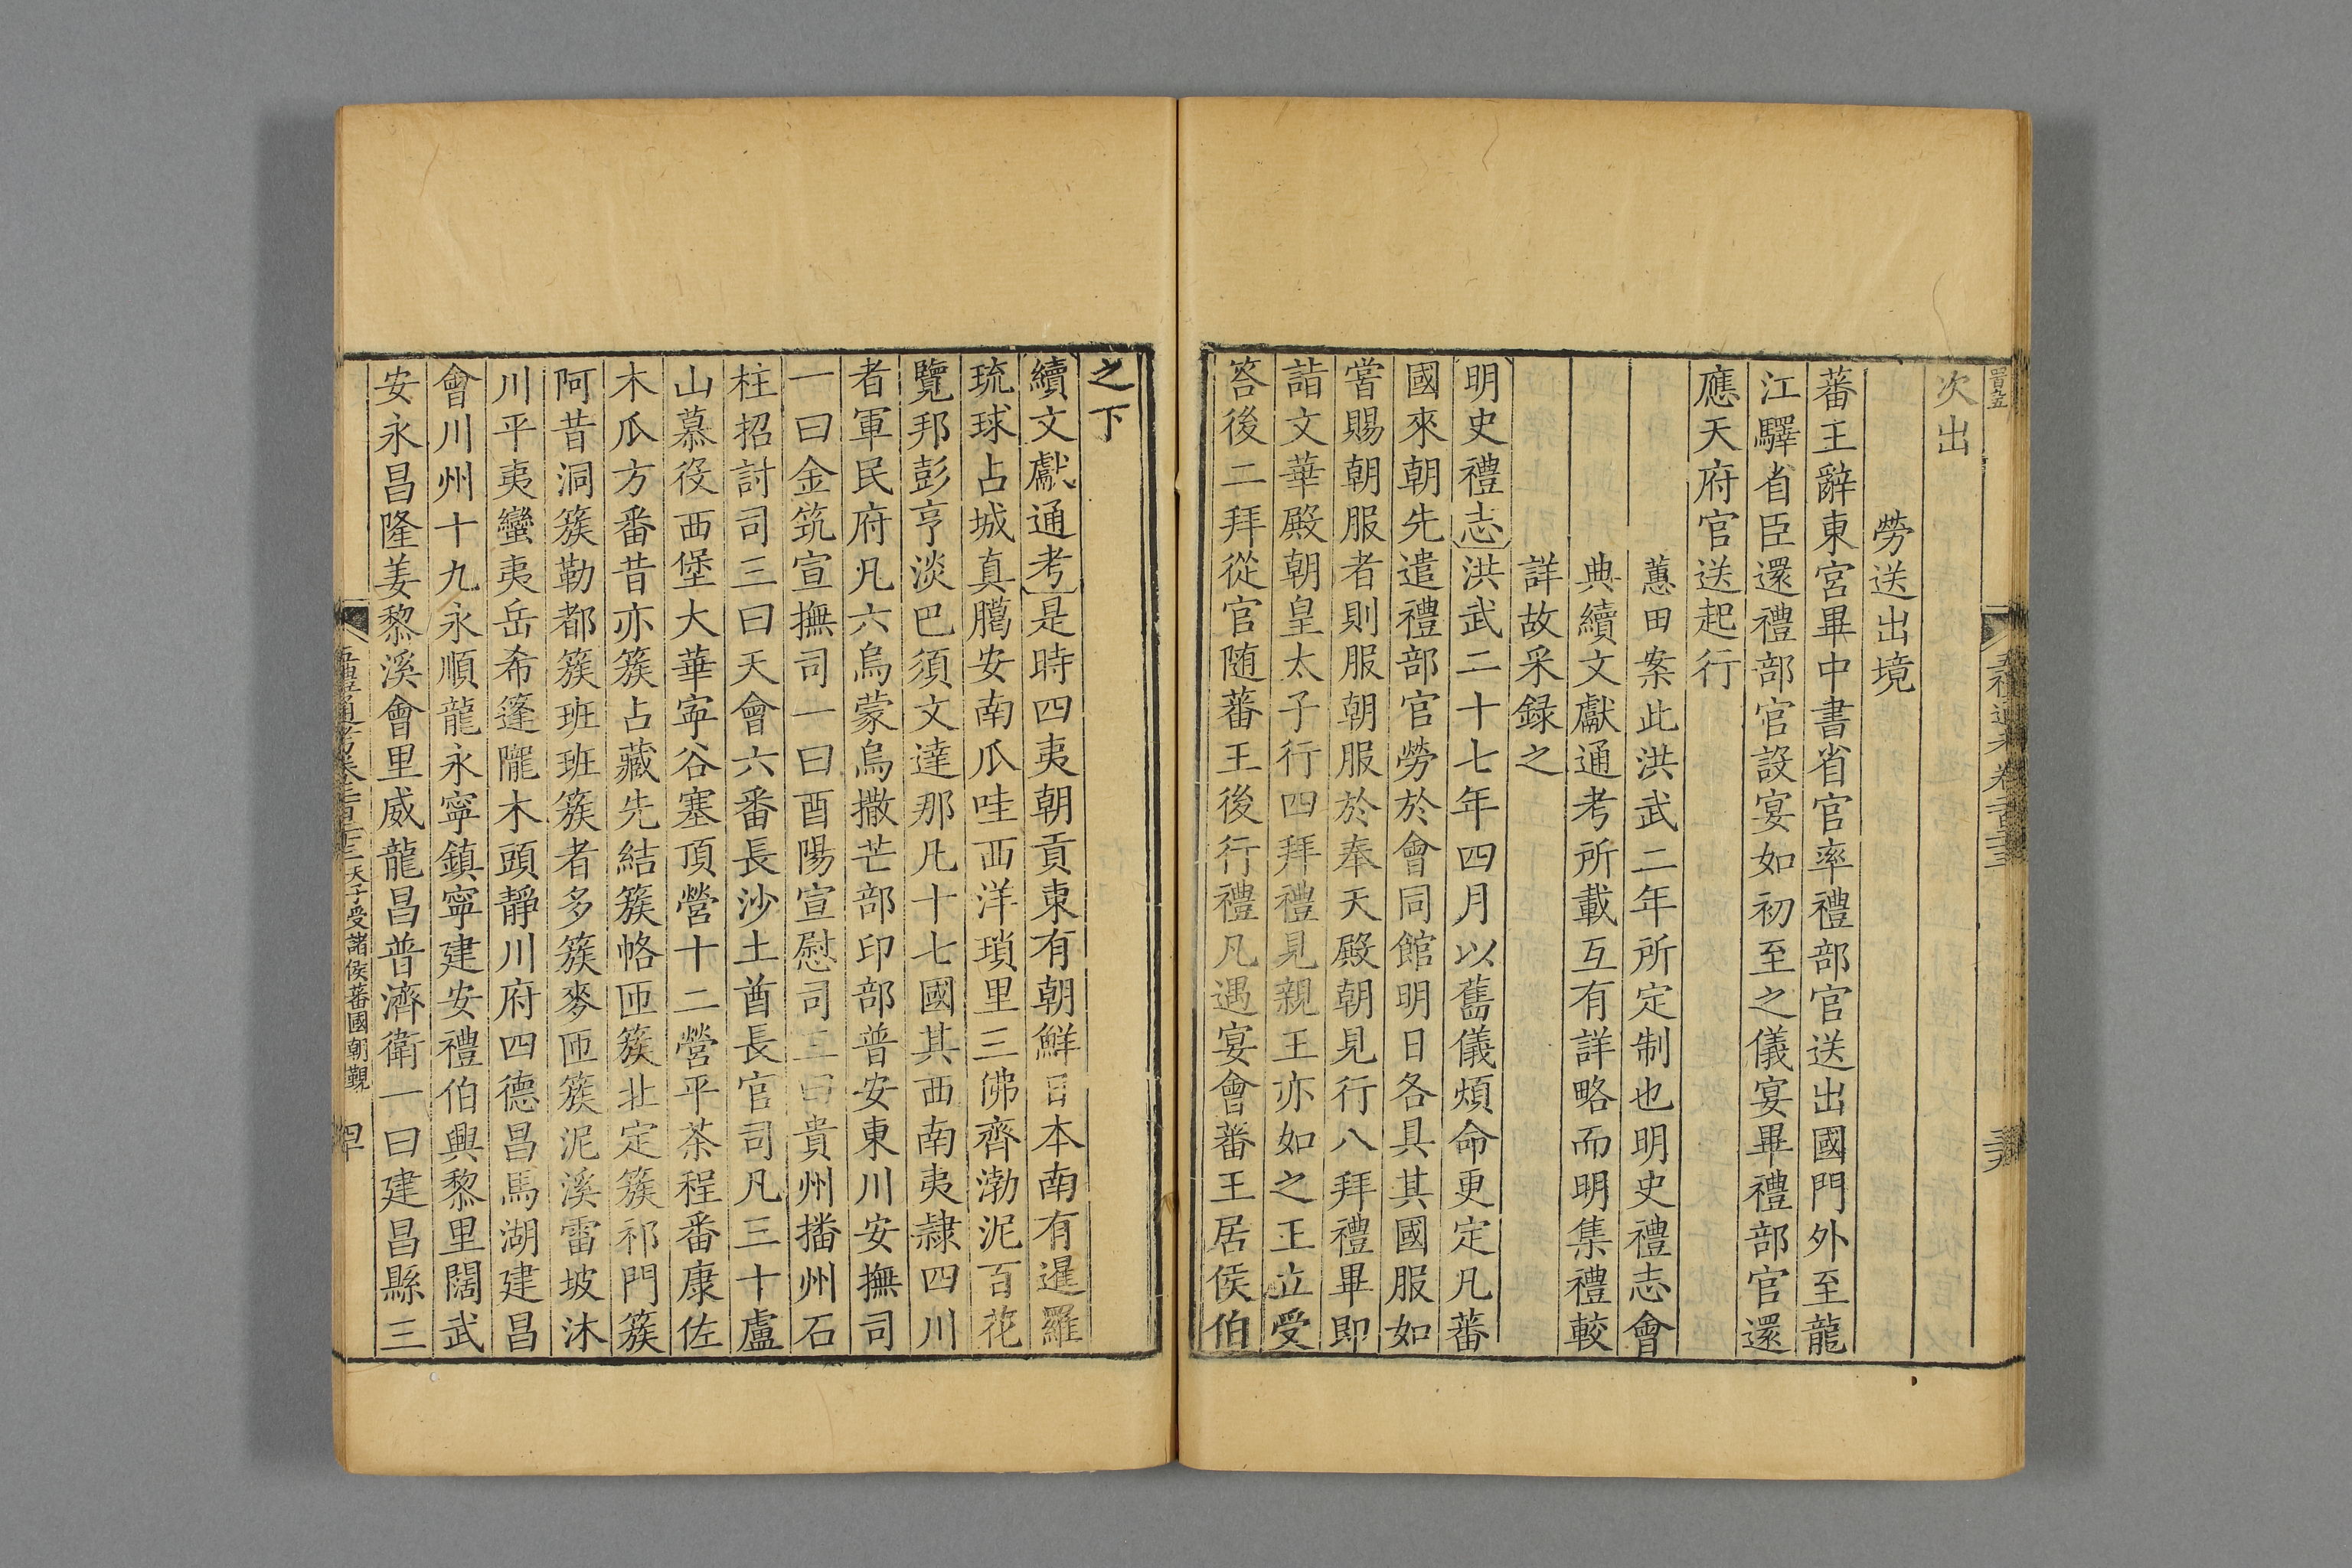 次出
勞送出境
蕃王辭東宮畢中書省官率禮部官送出國門外至龍
江驛省臣還禮部官設宴如初至之儀宴畢禮部官還
應天府官送起行
蕙田案此洪武二年所定制也明史禮志會
典續文獻通考所載互有詳略而明集禮較
詳故采録之
明史禮志洪武二十七年四月以舊儀煩命更定凡蕃
國來朝先遣禮部官勞於會同館明日各具其國服如
嘗賜朝服者則服朝服於奉天殿朝見行八拜禮畢即
詣文華殿朝皇太子行四拜禮見親王亦如之王立受
答後二拜從官随蕃王後行禮凡遇宴會蕃王居侯伯
之下
續文獻通考是時四夷朝貢東有朝鮮日本南有暹羅
琉球占城真臈安南瓜哇西洋瑣里三佛齊渤泥百花
覽邦彭亨淡巴須文達那凡十七國其西南夷隷四川
者軍民府凡六烏蒙烏撒芒部印部普安東川安撫司
一曰金筑宣撫司一曰酉陽宣慰司三曰貴州播州石
柱招討司三曰天會六番長沙土酋長官司凡三十盧
山慕役西堡大華寧谷塞頂營十二營平茶程番康佐
木瓜方番昔亦簇占藏先結簇市匝簇北定簇祁門簇
阿昔洞簇勒都簇班班簇者多簇麥匝簇泥溪雷坡沐
川平夷蠻夷岳希篷隴木頭靜川府四德昌馬湖建昌
會川州十九永順龍永寧鎮寧建安禮伯興黎里闊武
安永昌隆姜黎溪會里威龍昌普濟衛一曰建昌縣三
天子受諸侯蕃國朝覲